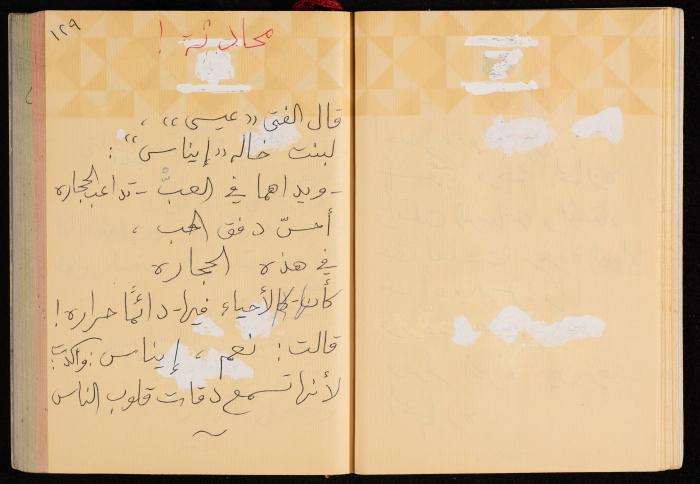 ١٢٩
محادثة !
قال الفتى «عيسى» ،
لبنت خاله «إيناس» :
- ويداهما في العبّ - تداعب الحجاره
أحسّ دفق الحب ،
في هذه الحجاره
كأنها - كالأحياء فيها - دائمًا حراره !
قالت : نعم ، إيناس : وأكدت :
لأنها تسمع دقات قلوب الناس
~